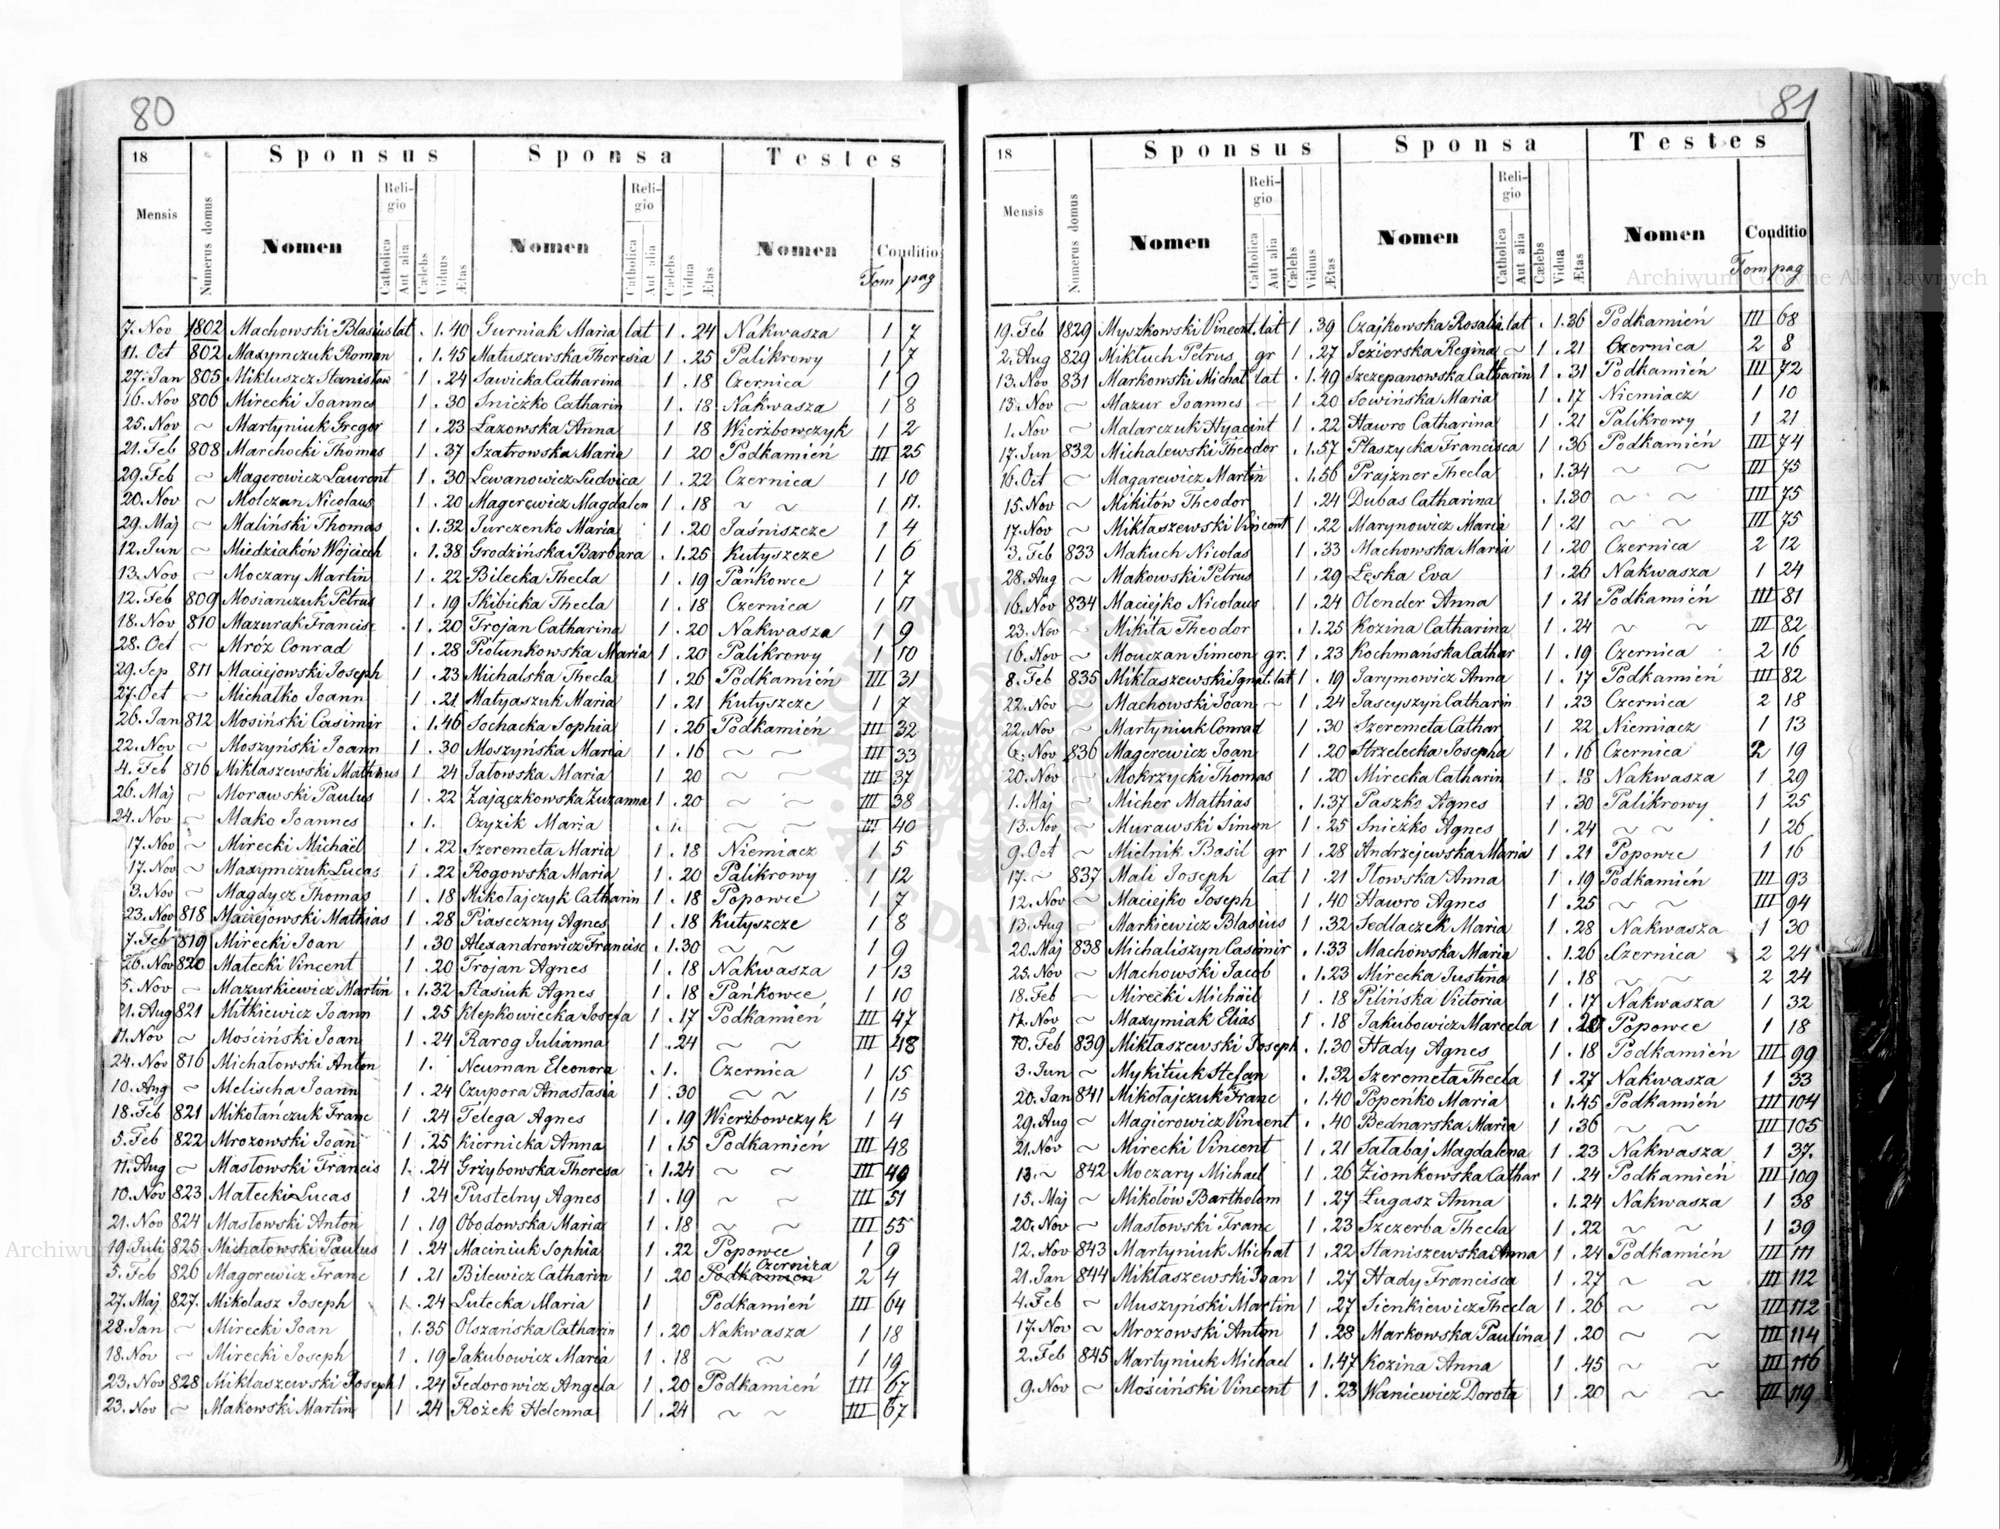 80
18 Sponsus Sponsa Testes
Mensis Numerus domus Nomen Religio Catholica Aut alia Cælebs Viduus Ætas Nomen Religio Catholica Aut alia Cælebs Vidua Ætas Nomen Conditio
Tom pag
7. Nov 1802 Machowski Blasius lat . 1. 40 Gurniak Maria lat 1 . 24 Nakwasza 1 7
11. Oct 802 Maxymczuk Roman . 1. 45 Matuszewska Theresia 1 . 25 Palikrowy 1 7
27. Jan 805 Mikluszcz Stanislaw 1 . 24 Sawicka Catharina 1 . 18 Czernica 1 9
16. Nov 806 Mirecki Joannes 1 . 30 Snieżko Catharin 1 . 18 Nakwasza 1 8
25. Nov ~ Martyniuk Gregor 1 . 23 Łazowska Anna 1 18 Wierzbowczyk 1 2
21. Feb 808 Marchocki Thomas 1 . 37 Szatrowska Maria 1 20 Podkamień III 25
29. Feb ~ Magerewicz Laurent 1 . 30 Lewanowicz Ludvica 1 . 22 Czernica 1 10
20. Nov ~ Molczan Nicolaus 1 . 20 Magerewicz Magdalen 1 . 18 ~ ~ 1 11.
29. Maj ~ Maliński Thomas . 1. 32 Jurczenko Maria 1 . 20 Jaśniszcze 1 4
12. Jun ~ Miedziaków Wojciech . 1. 38 Grodzińska Barbara . 1. 25 Kutyszcze 1 6
13. Nov ~ Moczary Martin 1 . 22 Bilecka Thecla 1 . 19 Pańkowce 1 7
12. Feb 809 Mosianczuk Petrus 1 . 19 Skibicka Thecla 1 . 18 Czernica 1 17
18. Nov 810 Mazurak Francisc . 1 . 20 Trojan Catharina 1 . 20 Nakwasza 1 9
28. Oct ~ Mróz Conrad 1 . 28 Piotunkowska Maria 1 . 20 Palikrowy 1 10
29. Sep 811 Maciejowski Joseph 1 . 23 Michalska Thecla 1 . 26 Podkamień III 31
27. Oct ~ Michalko Joann 1 . 21 Matyaszuk Maria 1 . 21 Kutyszcze 1 7
26. Jan 812 Mosiński Casimir . 1. 46 Sochacka Sophia 1 . 26 Podkamień III 32
22. Nov ~ Moszyński Joann 1 . 30 Moszyńska Maria 1 . 16 ~ ~ III 33
4. Feb 816 Miklaszewski Matheus 1 24 Jałowska Maria 1 20 ~ ~ III 37
26. Maj ~ Morawski Paulus 1 . 22 Zajączkowska Zuzanna 1 . 20 ~ ~ III 38
24. Nov ~ Mako Joannes . 1. Czyzik Maria . 1. ~ ~ III 40
17. Nov ~ Mirecki Michaël 1 . 22 Szeremeta Maria 1 . 18 Niemiacz 1 5
17. Nov ~ Maxymczuk Lucas 1 . 22 Rogowska Maria 1 . 20 Palikrowy 1 12
3. Nov ~ Magdycz Thomas 1 . 18 Mikołajczyk Catharin 1 . 18 Popowce 1 7
23. Nov 818 Maciejowski Mathias 1 . 28 Piaseczny Agnes 1 . 18 Kutyszcze 1 8
7. Feb 819 Mirecki Joan 1 . 30 Alexandrowicz Francisc . 1. 30 ~ ~ 1 9
26. Nov 820 Małecki Vincent 1 . 20 Trojan Agnes 1 . 18 Nakwasza 1 13
5. Nov ~ Mazurkiewicz Martin . 1. 32 Stasiuk Agnes 1 . 18 Pańkowce 1 10
21. Aug 821 Mitkiewicz Joann 1 . 25 Klepkowiecka Josefa 1 . 17 Podkamień III 47
11. Nov ~ Mościński Joan 1 . 24 Rarog Julianna 1 . 24 ~ ~ III 48
24. Nov 816 Michałowski Anton 1. Neuman Eleonora . 1. Czernica 1 15
10. Aug ~ Melischa Joann 1 . 24 Czupora Anastasia 1 . 30 ~ ~ 1 15
18. Feb 821 Mikołańczuk Franc 1 . 24 Telega Agnes 1 . 19 Wierzbowczyk 1 4
5. Feb 822 Mrozowski Joan 1 . 25 Kiernicka Anna 1 . 15 Podkamień III 48
11. Aug ~ Masłowski Francis 1. . 24 Grzybowska Theresa . 1. 24 ~ ~ III 49
10. Nov 823 Małecki Lucas 1 . 24 Pustelny Agnes 1 . 19 ~ ~ III 51
21. Nov 824 Masłowski Anton 1 . 19 Obodowska Maria 1 . 18 ~ ~ III 55
19. Juli 825 Michałowski Paulus 1 . 24 Maciniuk Sophia 1 . 22 Popowce 1 9
5. Feb 826 Magerewicz Franc 1 . 21 Bilewicz Catharin 1 . 20 Podkamień Czernica 2 4
27. Maj 827. Mikolasz Joseph 1 . 24 Lutecka Maria 1 Podkamień III 64
28. Jan ~ Mirecki Joan . 1. 35 Olszańska Catharin 1 . 20 Nakwasza 1 18
18. Nov ~ Mirecki Joseph 1 . 19 Jakubowicz Maria 1 . 18 ~ ~ 1 19
23. Nov 828 Miklaszewski Joseph 1 . 24 Fedorowicz Angela 1 . 20 Podkamień III 67
23. Nov ~ Makowski Martin 1 . 24 Rożek Helenna 1 . 24 ~ ~ III 67
81
18 Sponsus Sponsa Testes
Mensis Numerus domus Nomen Religio Catholica Aut alia Cælebs Viduus Ætas Nomen Religio Catholica Aut alia Cælebs Vidua Ætas Nomen Conditio
Tom pag
19. Feb 1829 Myszkowski Vincent. lat 1 . 39 Czajkowska Rosalia lat . 1. 36 Podkamień III 68
2. Aug 829 Mikłuch Petrus gr 1 . 27 Jezierska Regina ~ 1 . 21 Czernica 2 8
13. Nov 831 Markowski Michał lat . 1. 49 Szczepanowska Catharin 1 . 31 Podkamień III 72
13. Nov ~ Mazur Joannes ~ 1 . 20 Sowińska Maria 1 . 17 Niemiacz 1 10
1. Nov ~ Malarczuk Hyacint 1 . 22 Hawro Catharina 1 . 21 Palikrowy 1 21
17. Jun 832 Michalewski Theodor . 1. 57 Ptaszycka Francisca 1 . 36 Podkamień III 74
16. Oct ~ Magarewicz Martin . 1. 56 Prajzner Thecla . 1. 34 ~ ~ III 75
15. Nov ~ Mikitów Theodor 1 . 24 Dubas Catharina . 1. 30 ~ ~ III 75
17. Nov ~ Miklaszewski Vincent 1 . 22 Marynowicz Maria 1 . 21 ~ ~ III 75
3. Feb 833 Makuch Nicolas 1 . 33 Machowska Maria 1 . 20 Czernica 2 12
28. Aug ~ Makowski Petrus 1 . 29 Łęska Eva 1 . 26 Nakwasza 1 24
16. Nov 834 Maciejko Nicolaus 1 . 24 Olender Anna 1 . 21 Podkamień III 81
23. Nov ~ Mikita Theodor . 1. 25 Kozina Catharina 1 . 24 ~ ~ III 82
16. Nov ~ Mouczan Simeon gr. 1 . 23 Kochmańska Cathar 1 . 19 Czernica 2 16
8. Feb 835 Miklaszewski Ignat. lat 1 . 19 Jarymowicz Anna 1 . 17 Podkamień III 82
22. Nov ~ Machowski Joan ~ 1 . 24 Jascyszyn Catharin 1 . 23 Czernica 2 18
22. Nov ~ Martyniuk Conrad 1 . 30 Szeremeta Cathar 1 22 Niemiacz 1 13
6. Nov 836 Magerewicz Joan 1 . 20 Strzelecka Josepha 1 . 16 Czernica 2 19
20. Nov ~ Mokrzycki Thomas 1 . 20 Mirecka Catharin 1 . 18 Nakwasza 1 29
1. Maj ~ Micher Mathias . 1. 37 Paszko Agnes 1 . 30 Palikrowy 1 25
13. Nov ~ Murawski Simon 1 . 25 Snieżko Agnes 1 . 24 ~ ~ 1 26
9. Oct ~ Mielnik Basil gr 1 . 28 Andrzejewska Maria 1 . 21 Popowce 1 16
17. ~ 837 Mali Joseph lat 1 . 21 Iłowska Anna 1 . 19 Podkamień III 93
12. Nov ~ Maciejko Joseph 1 . 40 Hawro Agnes 1 . 25 ~ ~ III 94
13. Aug ~ Markiewicz Blasius 1 . 32 Sedlaczek Maria 1 . 28 Nakwasza 1 30
20. Maj 838 Michaliszyn Casimir . 1. 33 Machowska Maria . 1. 26 Czernica 2 24
25. Nov ~ Machowski Jacob . 1. 23 Mirecka Justina 1 . 18 ~ ~ 2 24
18. Feb ~ Mirecki Michäil 1 . 18 Pilińska Victoria 1 . 17 Nakwasza 1 32
12. Nov ~ Maxymiak Elias 1 . 18 Jakubowicz Marcela 1 . 20 Popowce 1 18
10. Feb 839 Miklaszewski Joseph . 1. 30 Hady Agnes 1 . 18 Podkamień III 99
3. Jun ~ Mykituk Stefan . 1. 32 Szeremeta Thecla 1 . 27 Nakwasza 1 33
20. Jan 841 Mikołajczuk Franc . 1. 40 Popenko Maria . 1. 45 Podkamień III 104
29. Aug ~ Magierowicz Vincent . . 40 Bednarska Maria 1 . 36 ~ ~ III 105
21. Nov ~ Mirecki Vincent 1 . 21 Sałabaj Magdalena 1 . 23 Nakwasza 1 37.
13. ~ 842 Moczary Michael 1 . 26 Ziomkowska Cathar 1 . 24 Podkamień III 109
15. Maj ~ Mikołów Bartholem 1 . 27 Ługasz Anna . 1. 24 Nakwasza 1 38
20. Nov ~ Masłowski Franc 1 . 23 Szczerba Thecla 1 . 22 ~ ~ 1 39
12. Nov 843 Martyniuk Michał 1 . 22 Staniszewska Anna 1 . 24 Podkamień III 111
21. Jan 844 Miklaszewski Joan 1 . 27 Hady Francisca 1 . 27 ~ ~ III 112
4. Feb ~ Muszyński Martin 1 . 27 Sienkiewicz Thecla 1 . 26 ~ ~ III 112
17. Nov ~ Mrozowski Anton 1 . 28 Markowska Paulina 1 . 20 ~ ~ III 114
2. Feb 845 Martyniuk Michael . 1. 47 Kozina Anna 1 . 45 ~ ~ III 116
9. Nov ~ Mościński Vincent 1 . 23 Waniewicz Dorota 1 . 20 ~ ~ III 119
Archiwum Główne Akt Dawnych